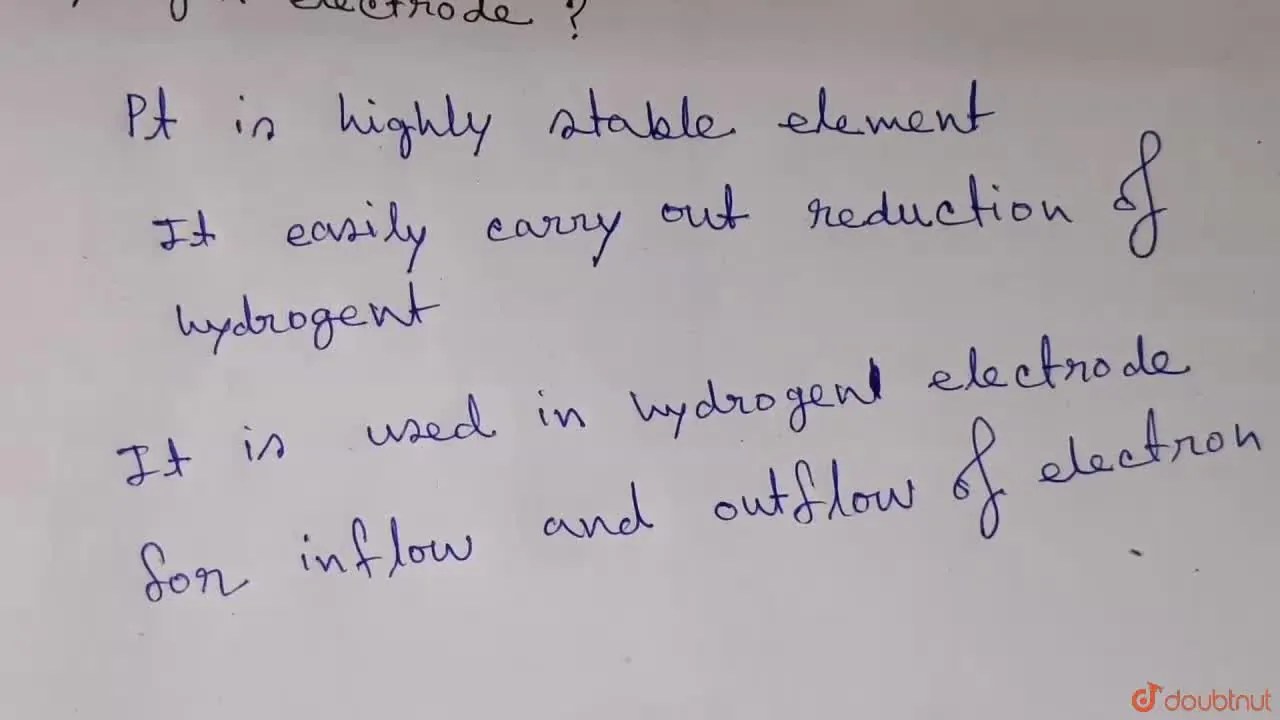 electrode ?
Pt is highly stable element
It easily carry out reduction of
hydrogent
It is used in hydrogen electrode
for inflow and outflow of electron
doubtnut